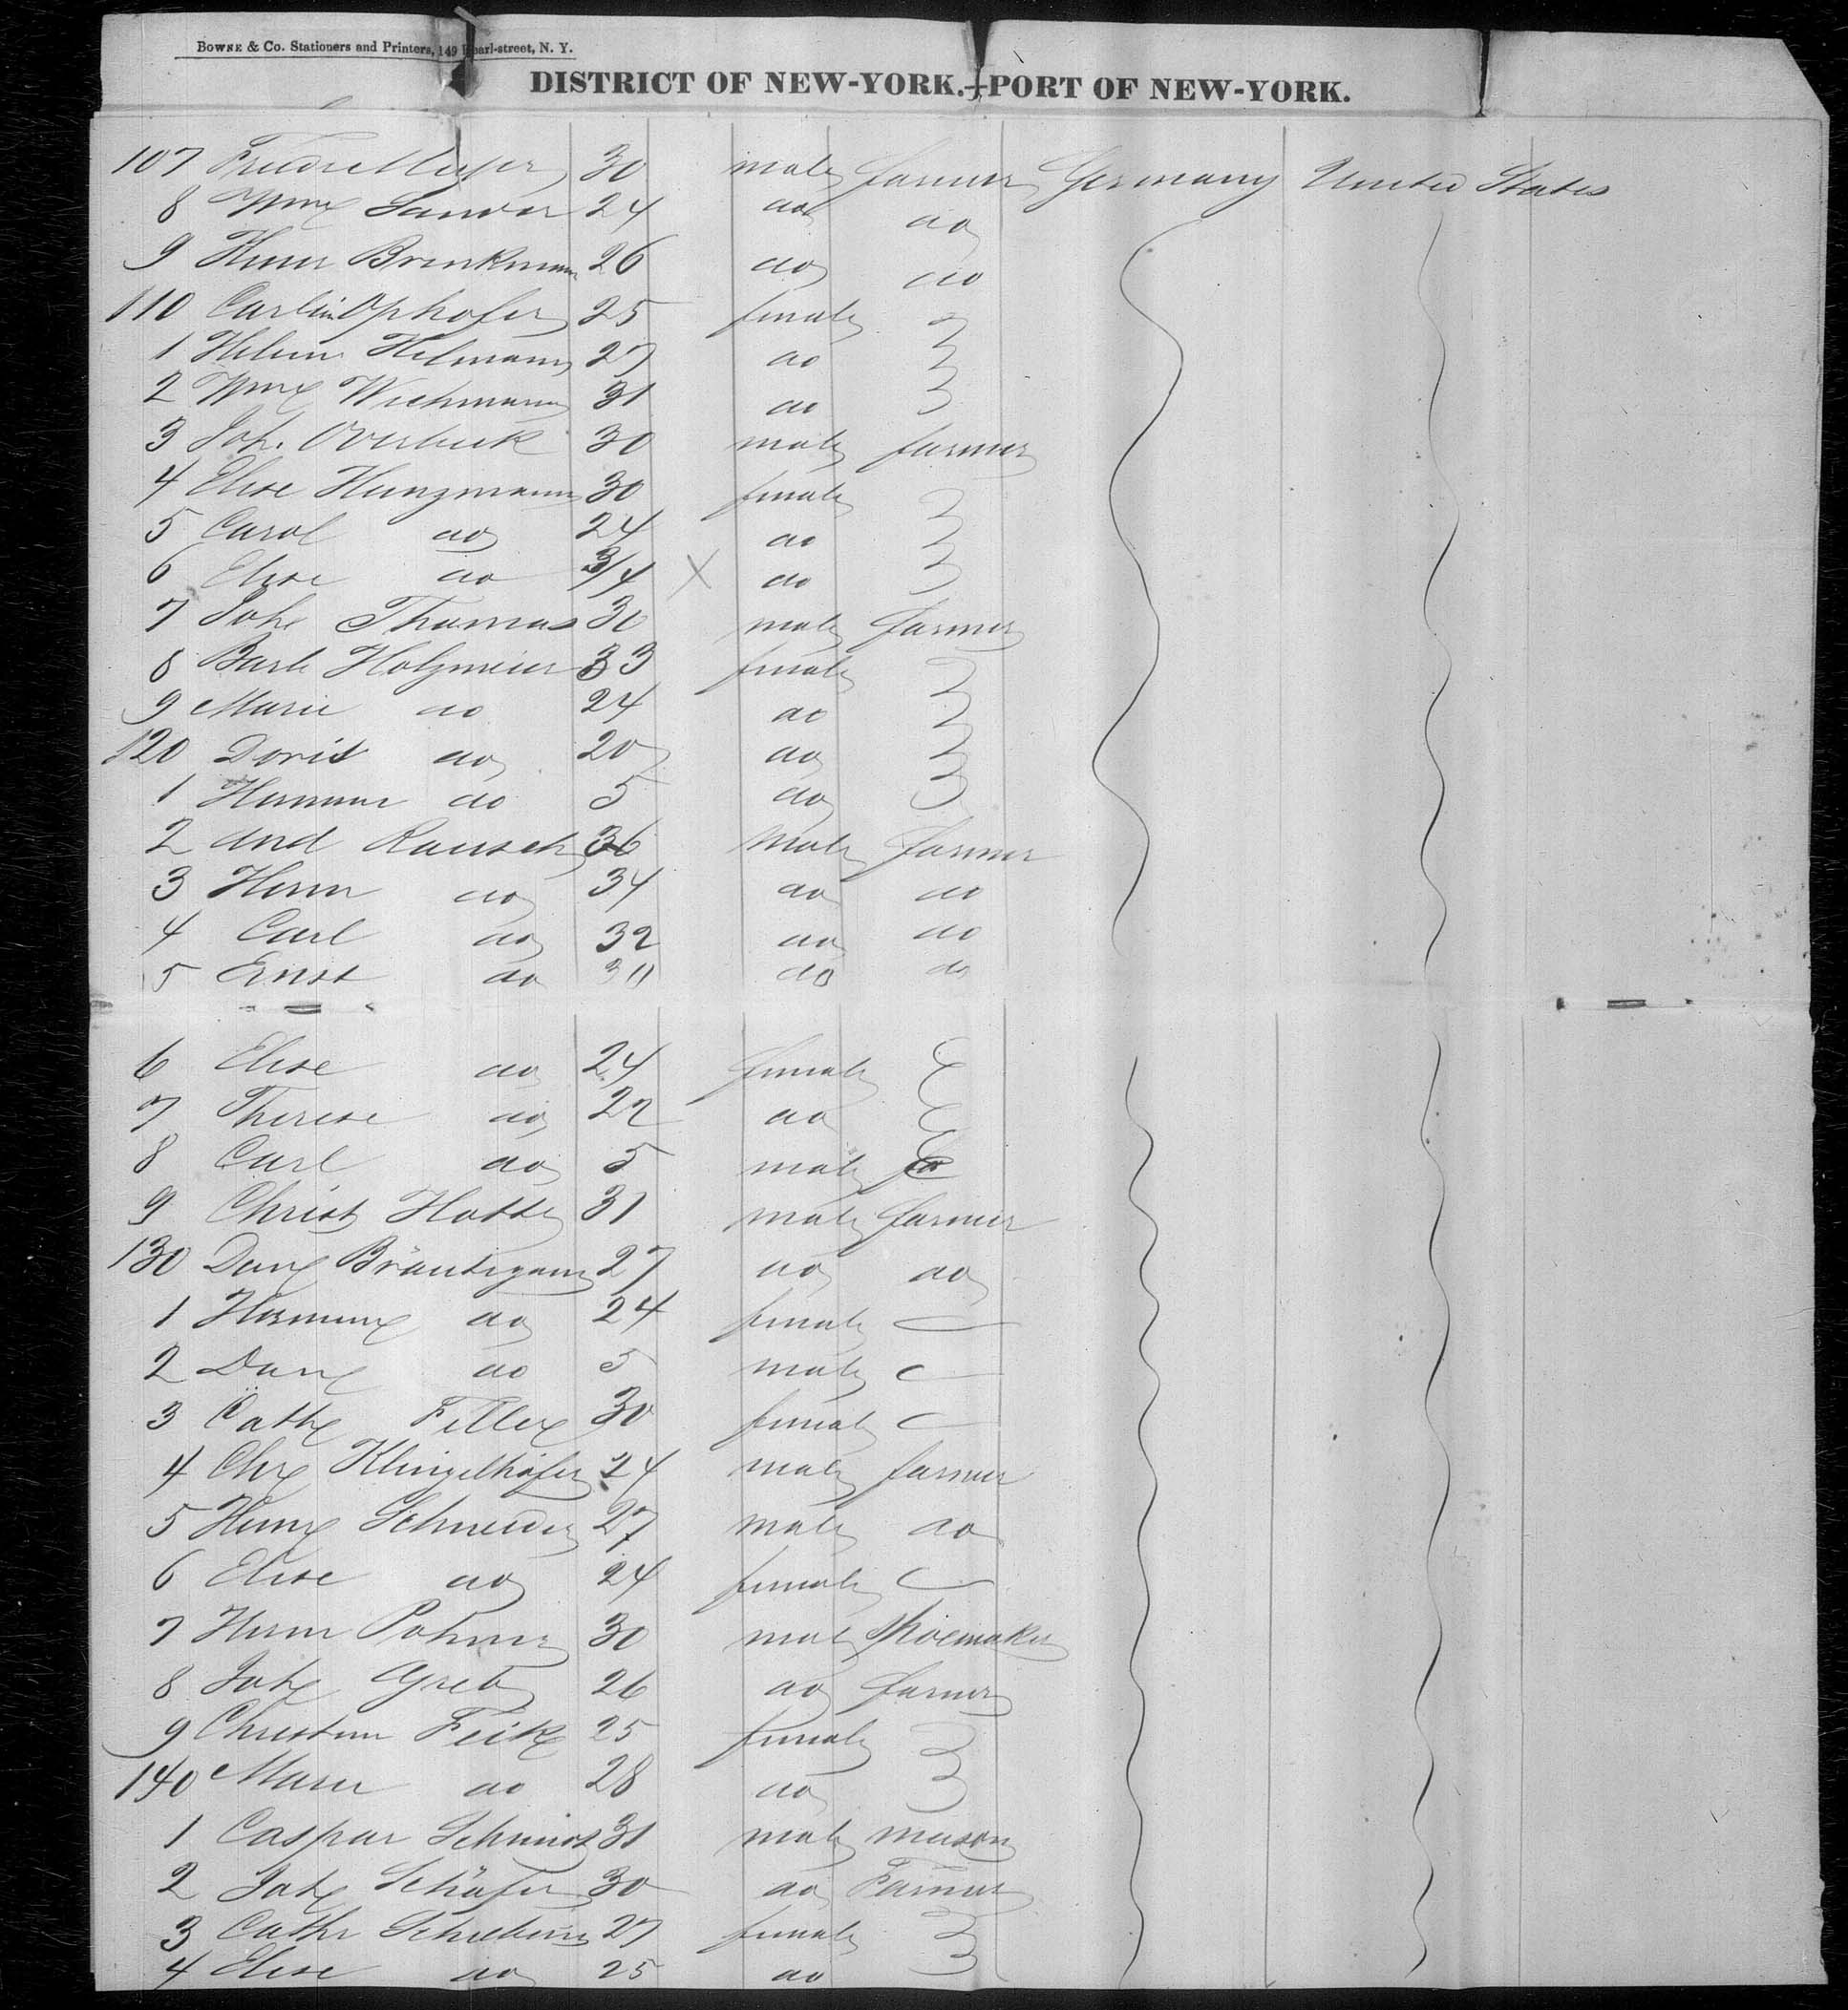 BOWNE & Co. Stationers and Printers, 149 Pearl-street, N. Y.
DISTRICT OF NEW-YORK.—PORT OF NEW-YORK.
107 30 male farmer Germany United States
8 Wm Sander 24 do do
9 Herm Brinkmann 26 do do
110 Carlin Ophofer 25 female
1 Helene Hofmann 27 do
2 Wme Wichmann 31 do
3 Joh. Overbeck 30 male farmer
4 Elise Hunzmann 30 female
5 Carol do 24 do
6 Elise do 3/4 X do
7 Joh Thomas 30 male farmer
8 Barb Holzmeier 33 female
9 Marie do 24 do
120 Doris do 20 do
1 do 5 do
2 And Rausch 36 male farmer
3 Herm do 34 do do
4 Carl do 32 do do
5 Ernst do 30 do do
6 Elise do 24 female
7 Therese do 22 do
8 Carl do 5 male
9 Christ Hotte 31 male farmer
130 Dan Bräutigam 27 do do
1 do 24 female
2 Dan do 5 male
3 Cath 30 female
4 Chr Klingelhöfer 24 male farmer
5 Schneider 27 male do
6 Elise do 24 female
7 Herm 30 male shoemaker
8 Joh Greb 26 do farmer
9 Christine Feik 25 female
140 Marie do 28 do
1 Caspar Schmidt 31 male mason
2 Joh Schäfer 30 do Farmer
3 Cathr 27 female
4 Elise do 25 do